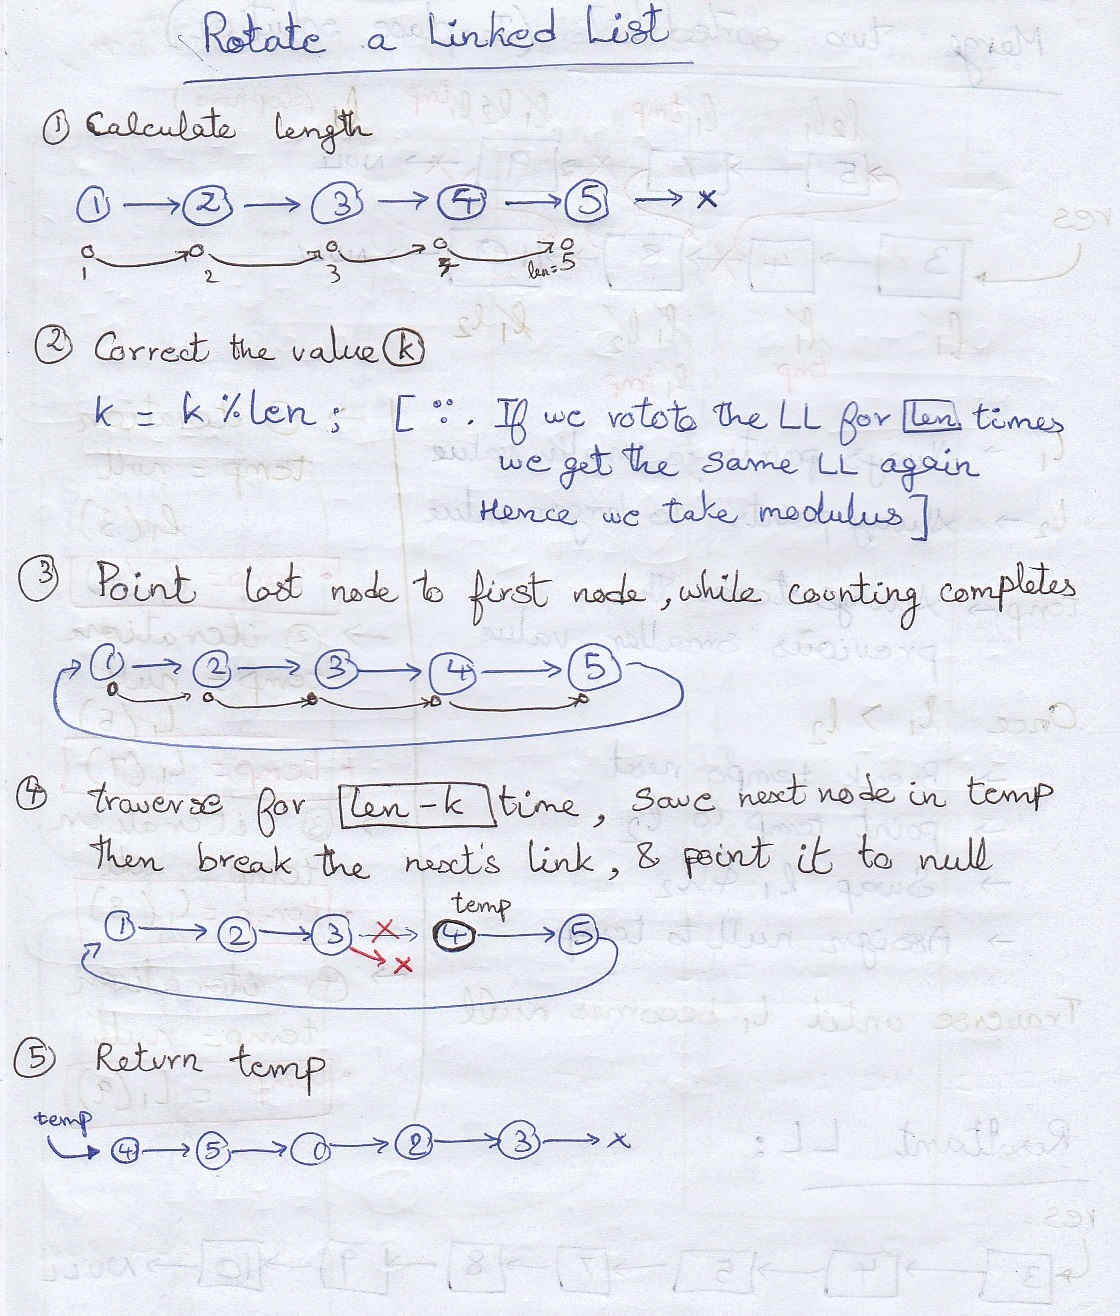 Rotate a Linked List
① Calculate length
① → ② → ③ → ④ → ⑤ → x
1 2 3 4 len=5
② Correct the value ⓚ
k = k % len ; [ ∵. If we rotote the LL for len times
we get the same LL again
Hence we take modulus ]
③ Point last node to first node, while counting completes
① → ② → ③ → ④ → ⑤
④ traverse for len - k time, save next node in temp
then break the next's link, & point it to null
temp
① → ② → ③ x → ④ → ⑤
x
⑤ Return temp
temp
④ → ⑤ → ① → ② → ③ → x